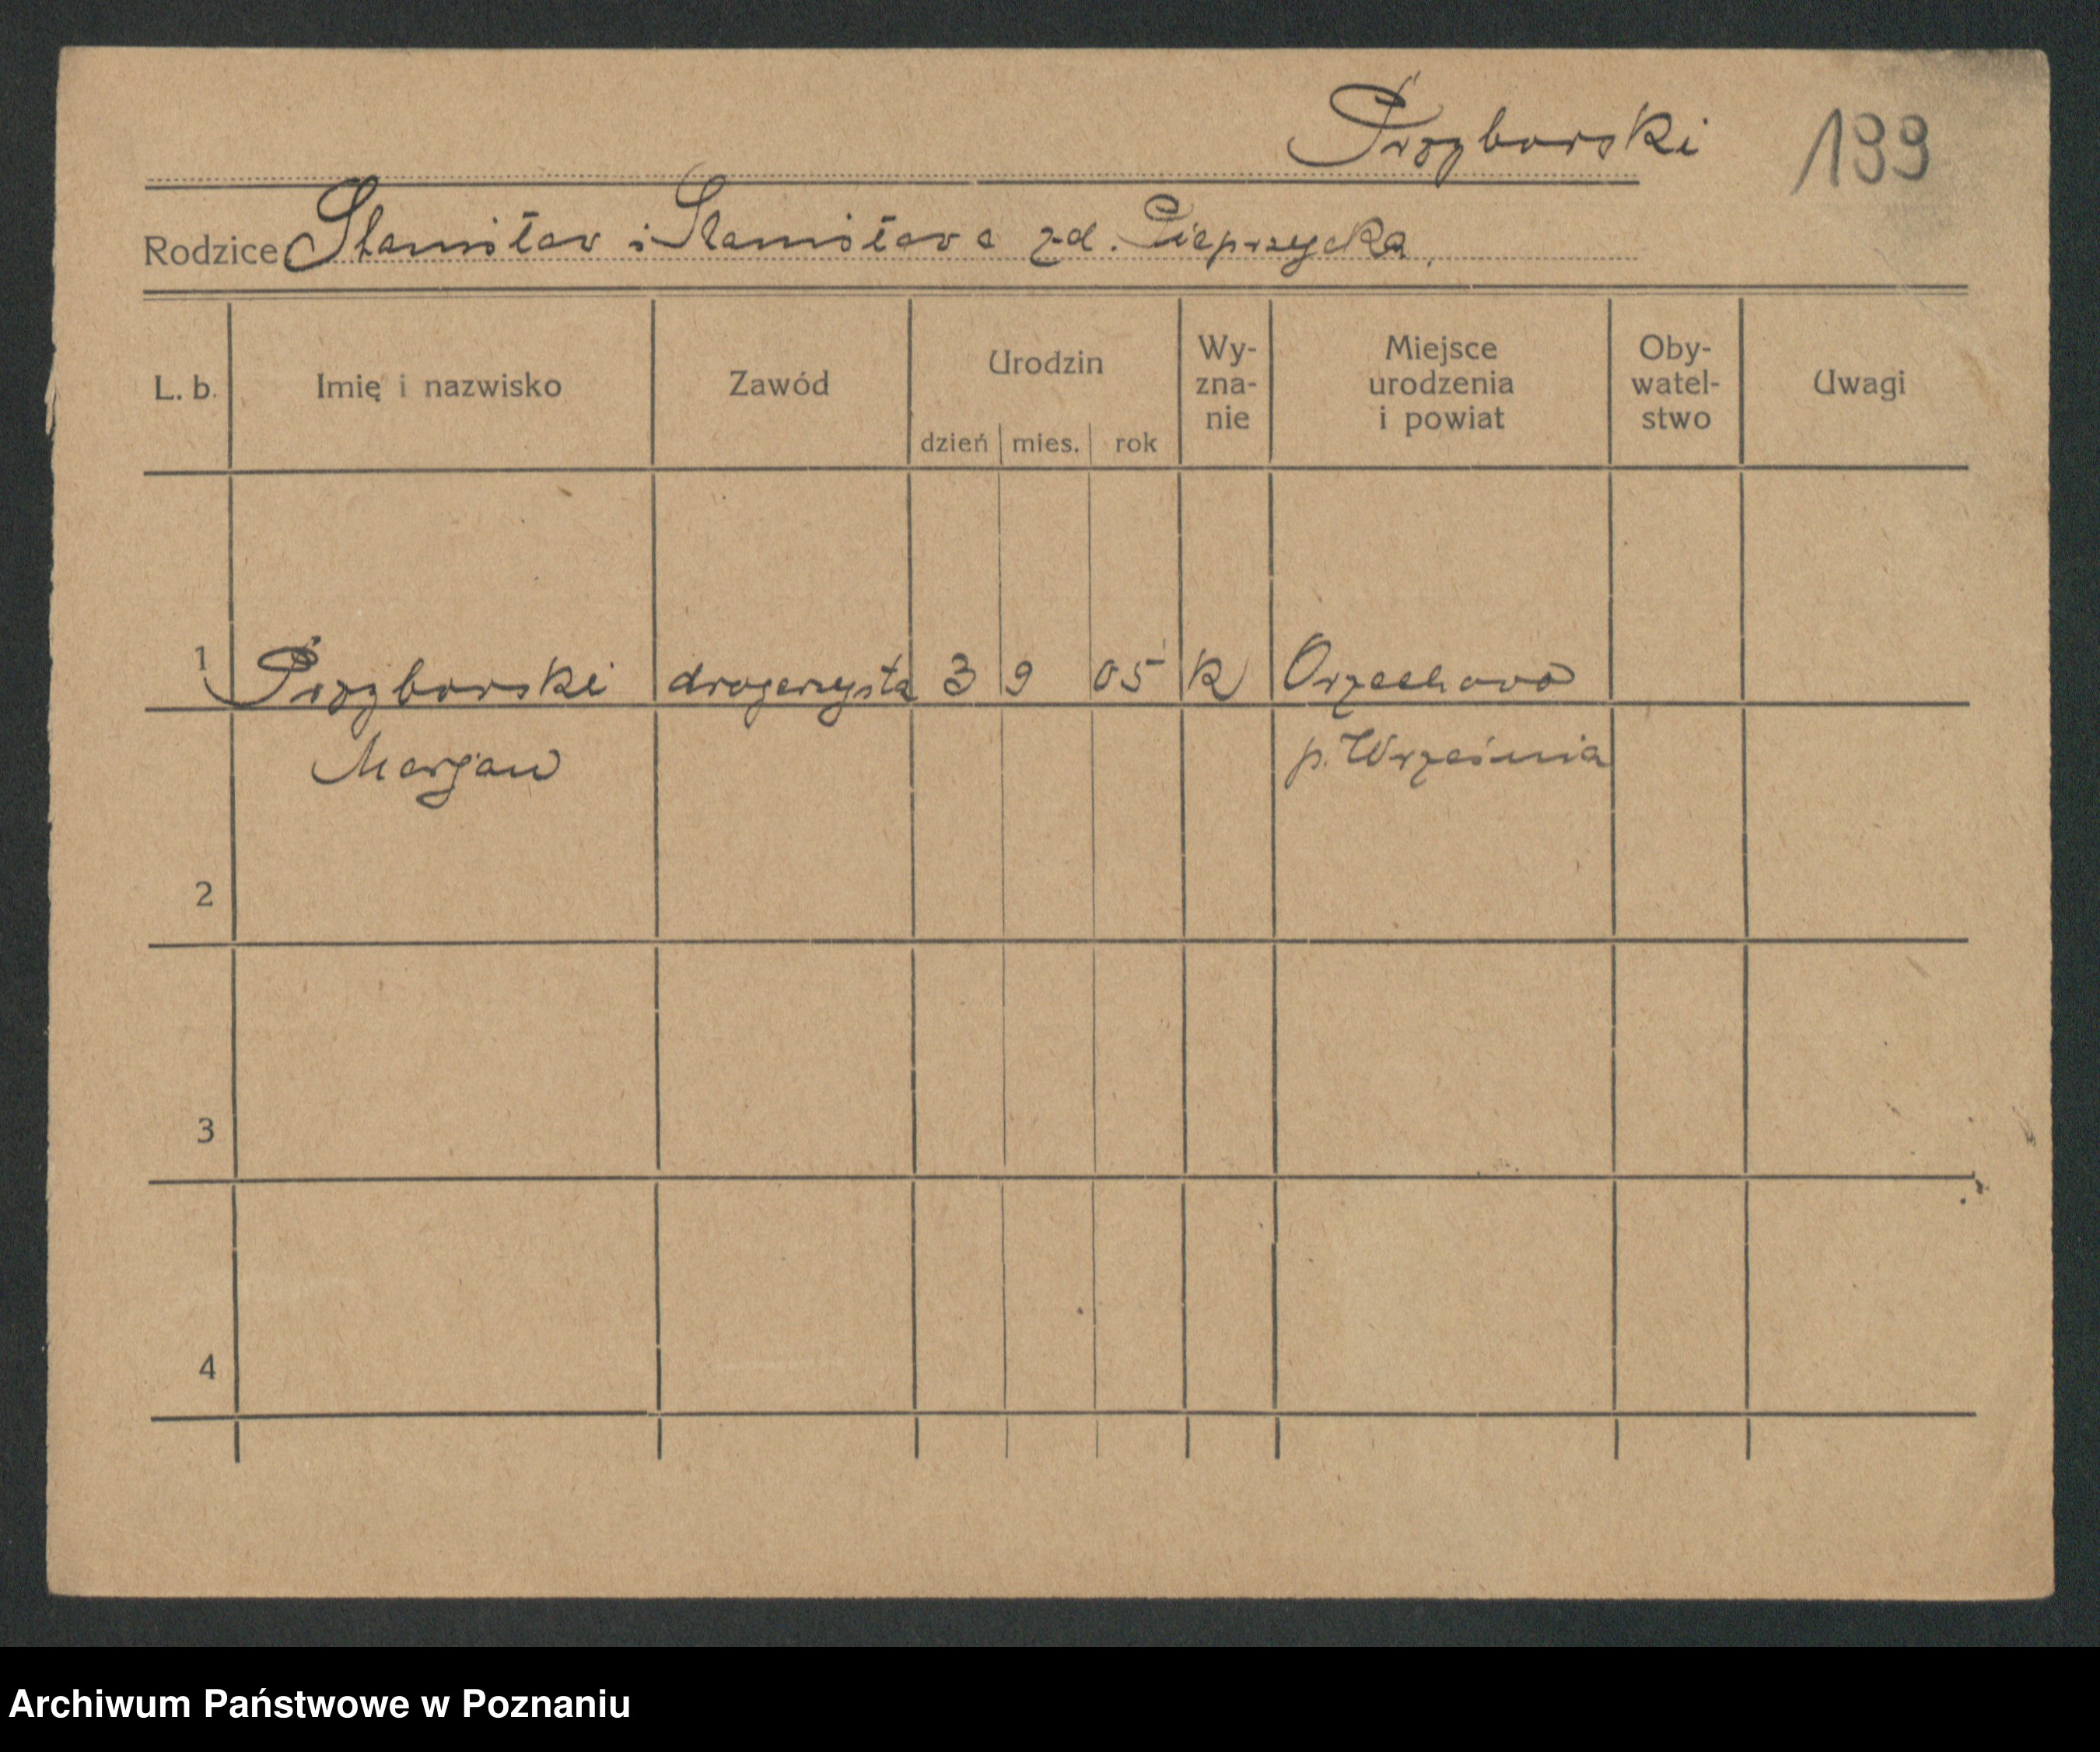 Przyborski 199
Rodzice Stanisław i Stanisława zd. Pieprzycka.
L. b. Imię i nazwisko Zawód Urodzin dzień mies. rok Wy-zna-nie Miejsce urodzenia i powiat Oby-watel-stwo Uwagi
1 Przyborski drogerzysta 3 9 05 K Orzechowo
Marjan p. Września
2
3
4
Archiwum Państwowe w Poznaniu